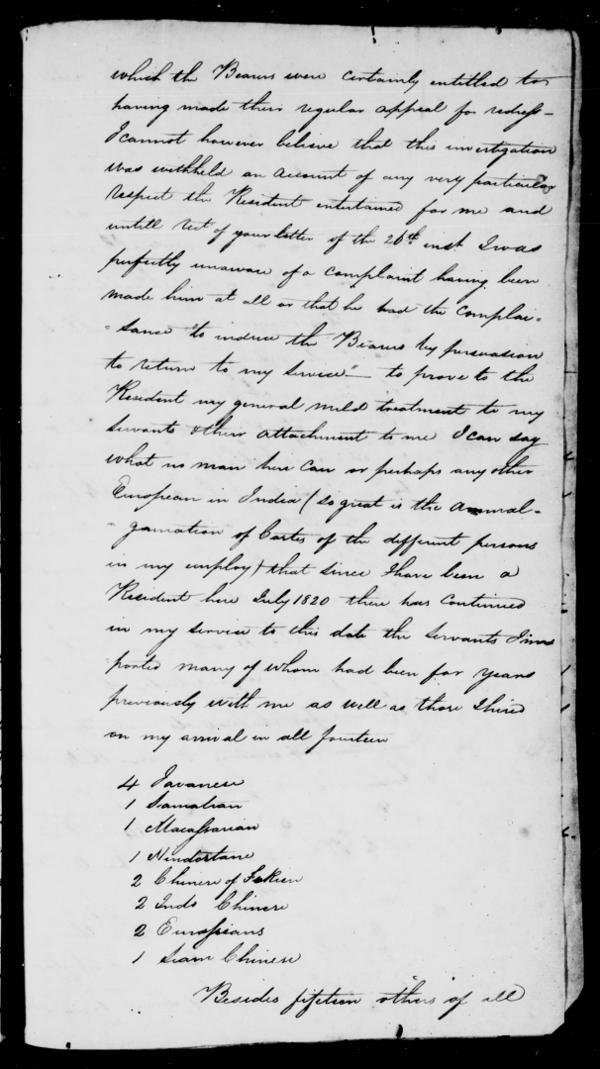 which the Bearers were certainly entitled to
having made their regular appeal for redress—
I cannot however believe that this investigation
was withheld on account of any very particular
respect the Resident entertained for me and
untill rect of your letter of the 26th inst I was
perfectly unaware of a complaint having been
made him at all or that he had the complai=
=sance "to induce the Bearers by persuasion
to return to my service"— to prove to the
Resident my general mild treatment to my
servants & their attachment to me I can say
what no man here can or perhaps any other
European in India (so great is the amal=
=gamation of Castes of the different persons
in my employ) that since I have been a
Resident here July 1820 there has continued
in my service to this date the servants I im
ported many of whom had been for years
previously with me as well as those I hired
on my arrival in all fourteen
4 Javanese
1 Samatran
1 Macassarian
1 Hindostane
2 Chinese of Fokien
2 Indo Chinese
2 Eurasians
1 Siam Chinese
Besides fifteen "others" of all